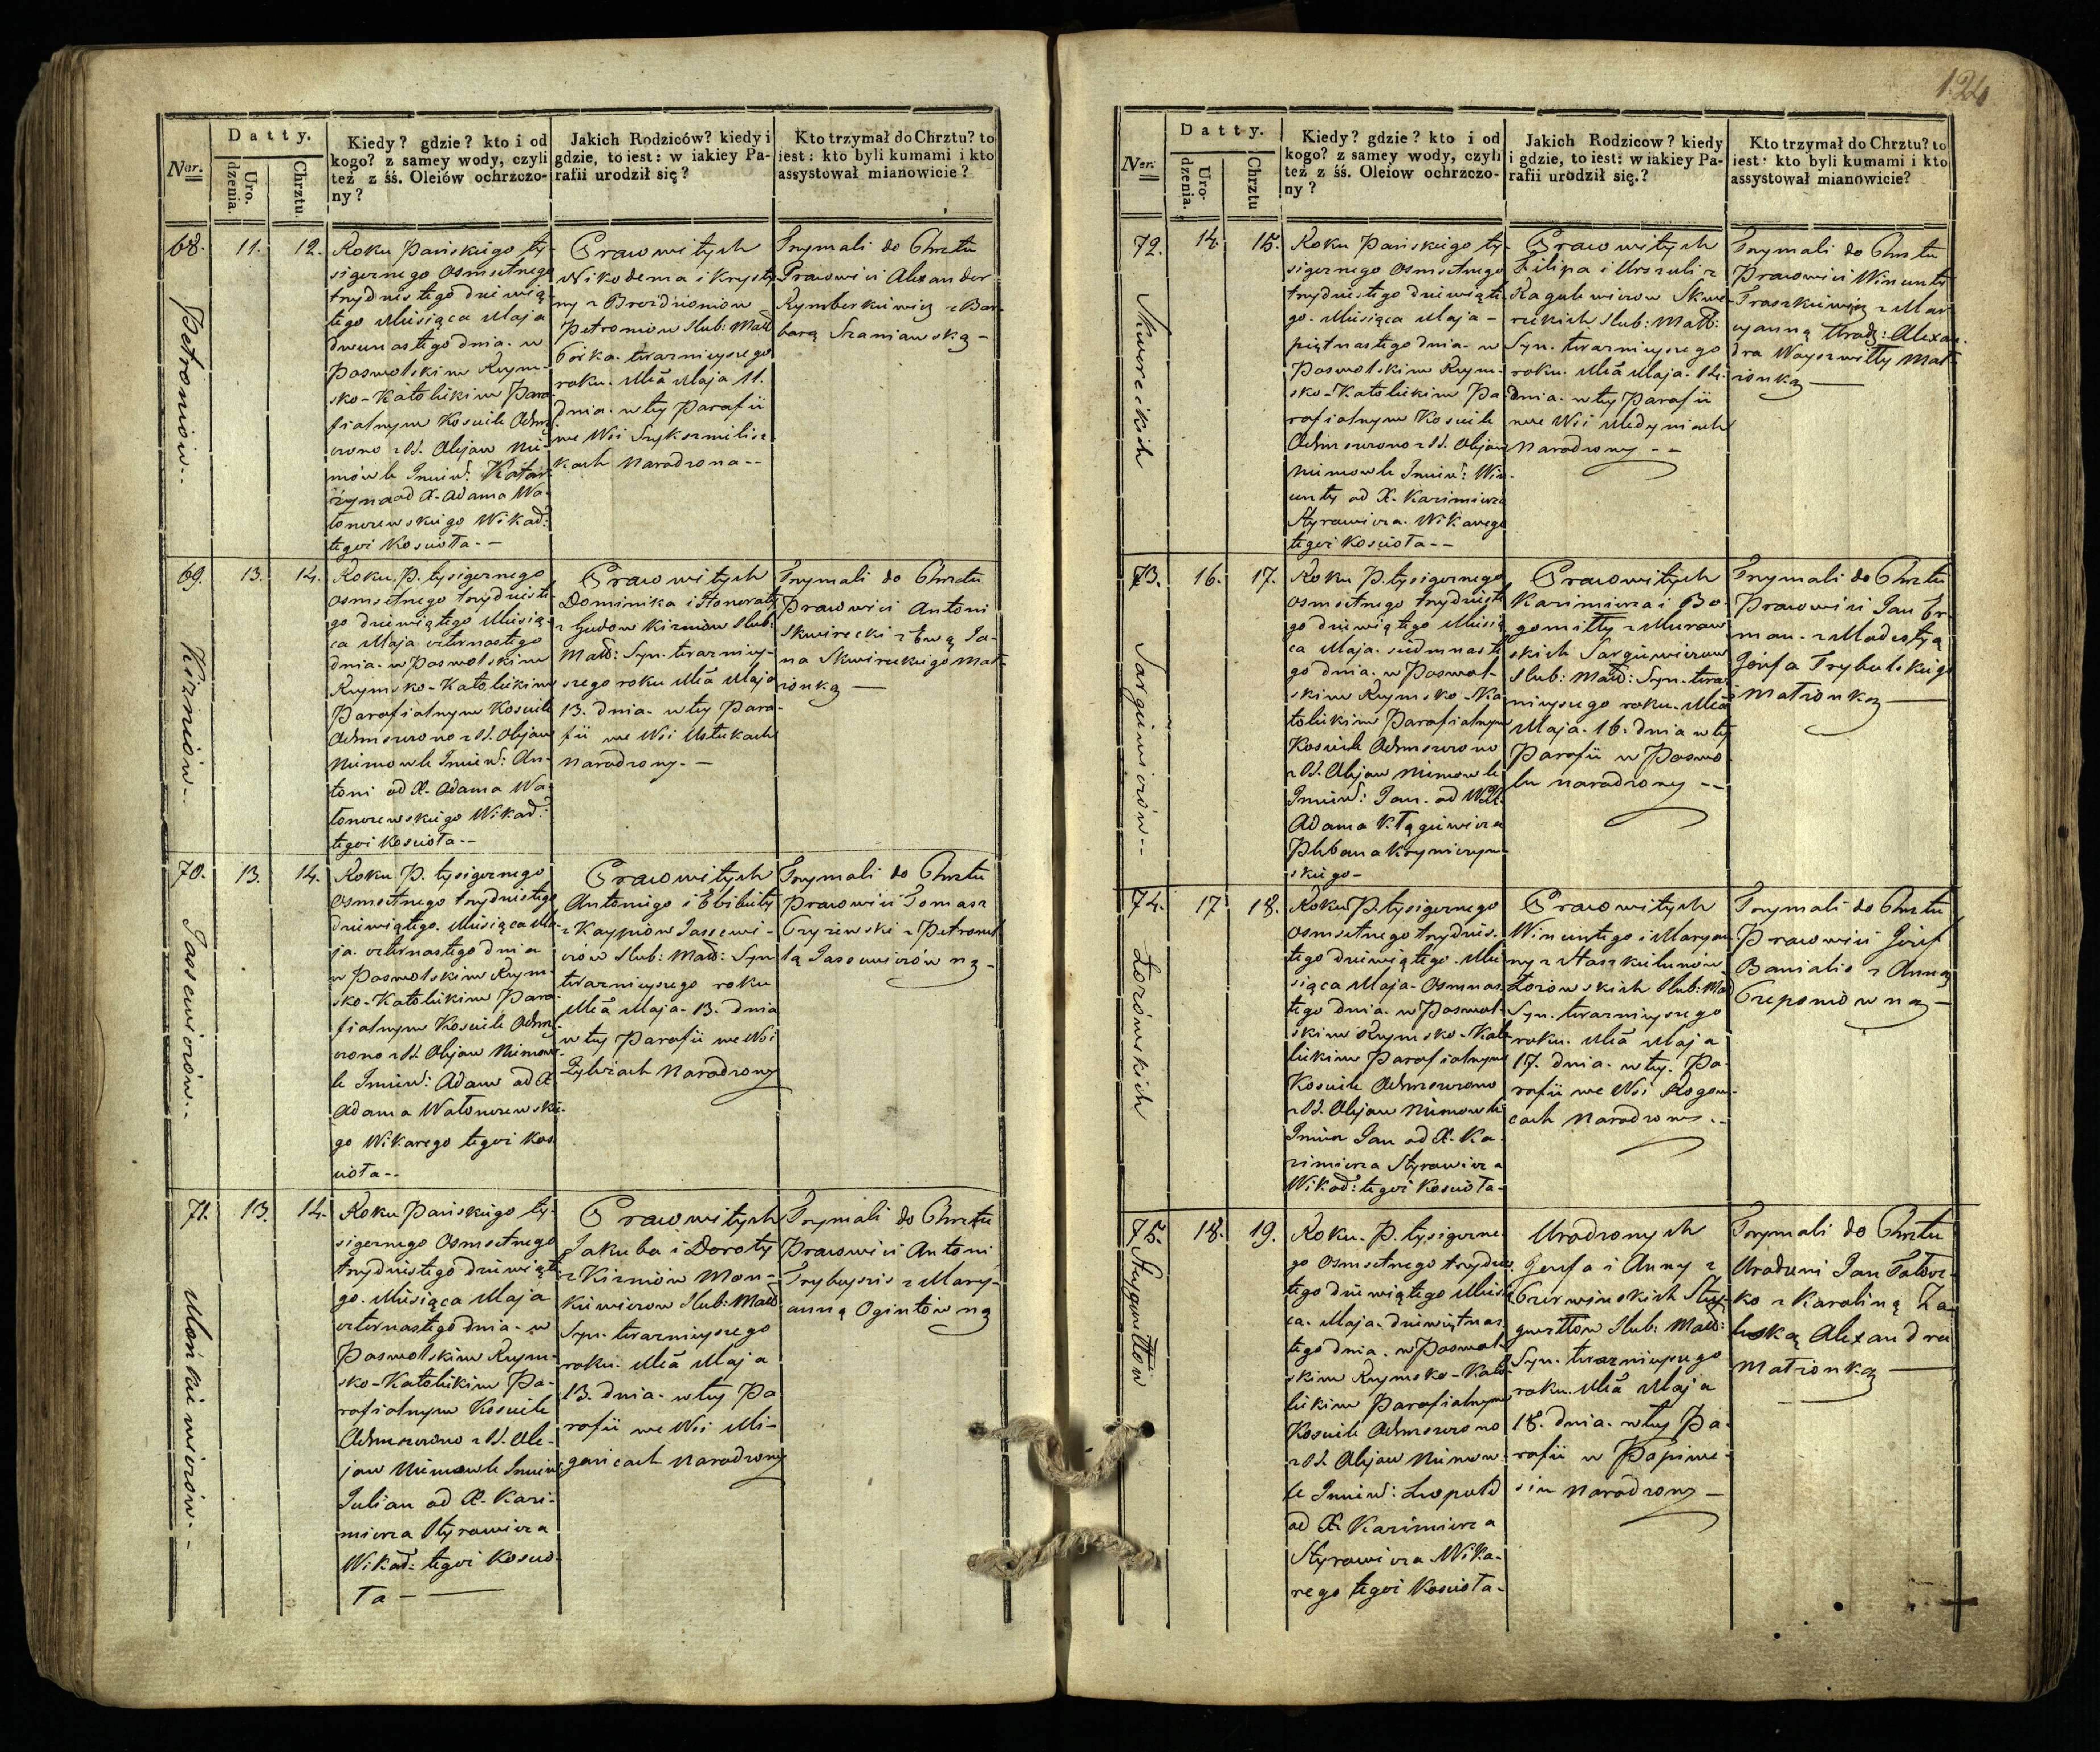 Nar.
Datty.
Uro.
dzenia.
Chrztu.
Kiedy? gdzie? kto i od
kogo? z samey wody, czyli
też z śś. Oleiów ochrzczo-
ny?
Jakich Rodziców? kiedy i
gdzie, to iest: w iakiey Pa-
rafii urodził się?
Kto trzymał do Chrztu? to
iest: kto byli kumami i kto
assystował mianowicie?
68.
Petroniów..
11.
12.
Roku Pańskiego ty-
siącznego Osmsetnego
trzydziestego dziewią-
tego Miesiąca Maja
dwunastego dnia. w
Poswolskim Rzym-
sko-Katolickim Para
fialnym Kosciele Ochrz
czono z SS. Olejow Nie-
mowle Imien: Katar
zyna od X. Adama Wa-
łonczewskiego Wikar:
tegoi Koscioła.-
Prawowitych
Nikodema i Krysty
ny z Broidzioniow
Petroniow Slub: Małż
Córka. teraznieyszego
roku. Mca Maja 11.
dnia. w tey Parafii
we Wsi Szyksznilisz
kach Narodzona--
Trzymali do Chrztu
Prawowici Alexander
Rymberkiewicz z Bar-
barą Szaniawską-
69.
Kizniów..
13.
14.
Roku P. tysiącznego
Osmsetnego trzydzieste
go dziewiątego Miesią-
ca Maja czternastego
dnia. w Poswolskim
Rzymsko-Katolickim
Parafialnym Kosciele
Ochrzczono z SS. Olejow
Niemowle Imien: An-
toni od X. Adama Wa-
łonczewskiego Wikar:
tegoi Kosciola--
Prawowitych
Dominika i Honoraty
z Gudow Kizniow Slub:
Małż: Syn. terazniey-
szego roku Mca Maja
13. dnia. w tey Para-
fii we Wsi Ustukach
Narodzony.-
Trzymali do Chrztu
Prawowici Antoni
Skwirecki z Ewą Ja-
na Skwireckiego Mał-
żonką -
70.
Jasewiczów..
13.
14.
Roku P. tysiącznego
Osmsetnego trzydziestego
dziewiątego. Miesiąca Ma-
ja. czternastego dnia
w Poswolskim Rzym-
sko-Katolickim Para-
fialnym Kosciele Ochrz-
czono z SS. Olejow Niemow-
le Imien: Adam od X
Adama Wałonczewskie-
go Wikarego tegoi Kos
cioła--
Prawowitych
Antoniego i Elżbiety
z Kaypiow Jasewi-
czow Slub: Małż: Syn
teraznieyszego roku
Mca Maja. 13. dnia
w tey Parafii we Wsi
Narodzony
Trzymali do Chrztu
Prawowici Tomasz
Czyzewski z Petronel
lą Jasewiczówną-
71.
Mońkiewiczów.-
13.
14.
Roku Pańskiego ty-
siącznego Osmsetnego
trzydziestego dziewiąte
go. Miesiąca Maja
czternastego dnia. w
Poswolskim Rzym-
sko-Katolickim Pa-
rafialnym Kosciele
Ochrzczono z SS. Ole-
jow Niemowle Imien
Julian od X. Kazi-
mierza Styrawicza
Wikar: tegoi Koscio-
ła -
Prawowitych
Jakuba i Doroty
z Kizniow Mon-
kiewiczow Slub: Małż
Syn. teraznieyszego
roku. Mca Maja
13. dnia. w tey Pa
rafii we Wsi Mi-
gańcach Narodzony
Trzymali do Chrztu
Prawowici Antoni
Trybuyszis z Mary-
anną Ogintówną
124
Ner.
Datty.
Uro-
dzenia.
Chrztu
Kiedy? gdzie? kto i od
kogo? z samey wody, czyli
też z śś. Oleiow ochrzczo-
ny?
Jakich Rodziców? kiedy
i gdzie, to iest: w iakiey Pa-
rafii urodził się.?
Kto trzymał do Chrztu? to
iest: kto byli kumami i kto
assystował mianowicie?
72.
Skwireckich
14.
15.
Roku Pańskiego ty-
siącznego Osmsetnego
trzydziestego dziewiąte
go. Miesiąca Maja-
piętnastego dnia. w
Poswolskim Rzym-
sko-Katolickim Pa
rafialnym Kosciele
Ochrzczono z SS. Olejow
Niemowle Imien: Win-
centy od X. Kazimierza
Styrawicza. Wikarego
tegoi Kosciola--
Prawowitych
Filipa i Urszuli z
Ragulewiczow Skwi-
reckich Slub: Małż:
Syn. teraznieyszego
roku. Mca Maja. 14.
dnia. w tey Parafii
we Wsi Medyniach
Narodzony--
Trzymali do Chrztu
Prawowici Wincenty
Traszkiewicz z Mar
yanną Urodz: Alexan-
dra Woyszwiłły Mał-
żonką -
73.
Sargiewiczów--
16.
17.
Roku P. tysiącznego
Osmsetnego trzydzieste
go dziewiątego Miesią
ca Maja. siedmnaste
go dnia. w Poswol-
skim Rzymsko-Ka
tolickim Parafialnym
Kosciele Ochrzczono
z SS. Olejow Niemowle
Imien: Jan. od WX.
Adama Kłągiewicza
Plebana Kryniczyn-
skiego-
Prawowitych
Kazimierza i Bo-
gomiłły z Muraw
skich Sargiewiczow
Slub: Małż: Syn. tera
znieyszego roku. Mca
Maja. 16. dnia w tey
Parafii w Poswo
lu narodzony--
Trzymali do Chrztu
Prawowici Jan Er
man. z Modestą
Józefa Trybulskiego
Małżonką -
74.
Łozówskich
17
18.
Roku P. tysiącznego
Osmsetnego trzydzies-
tego dziewiątego. Mie
siąca Maja. Osmnas-
tego dnia. w Poswol-
skim Rzymsko-Kato
lickim Parafialnym
Kosciele Ochrzczono
z SS. Olejow Niemowle
Imien Jan od X. Ka-
zimierza Styrawicza
Wikar: tegoi Kosciola-
Prawowitych
Wincentego i Maryan
ny z Staszkielunów
Łozowskich Slub: Mał
Syn. teraznieyszego
roku. Mca Maja
17. dnia. w tey. Pa-
rafii we Wsi Rogow-
cach Narodzony.-
Trzymali do Chrztu
Prawowici Józef
Banialis z Anną
Czeponiówną-
75.
Steygwiłłów
18.
19.
Roku. P. tysiączne-
go Osmsetnego trzydzies
tego dziewiątego Miesią
ca. Maja. dziewiętnas
tego dnia. w Poswol-
skim Rzymsko-Kato-
lickim Parafialnym
Kosciele Ochrzczono
z SS. Olejow Niemow-
le Imien: Leopold
od X. Kazimierza
Styrawicza Wika-
rego tegoi Kosciola-
Urodzonych
Jozefa i Anny z
Czerwinskich Stey-
Slub: Małż:
Syn. teraznieyszego
roku. Mca Maja
18. dnia. w tey Pa-
rafii w Popiwe-
siu Narodzony-
Trzymali do Chrztu
Urodzeni Jan Tołocz-
ko z Karoliną Za-
leską Alexandra
Małżonką -